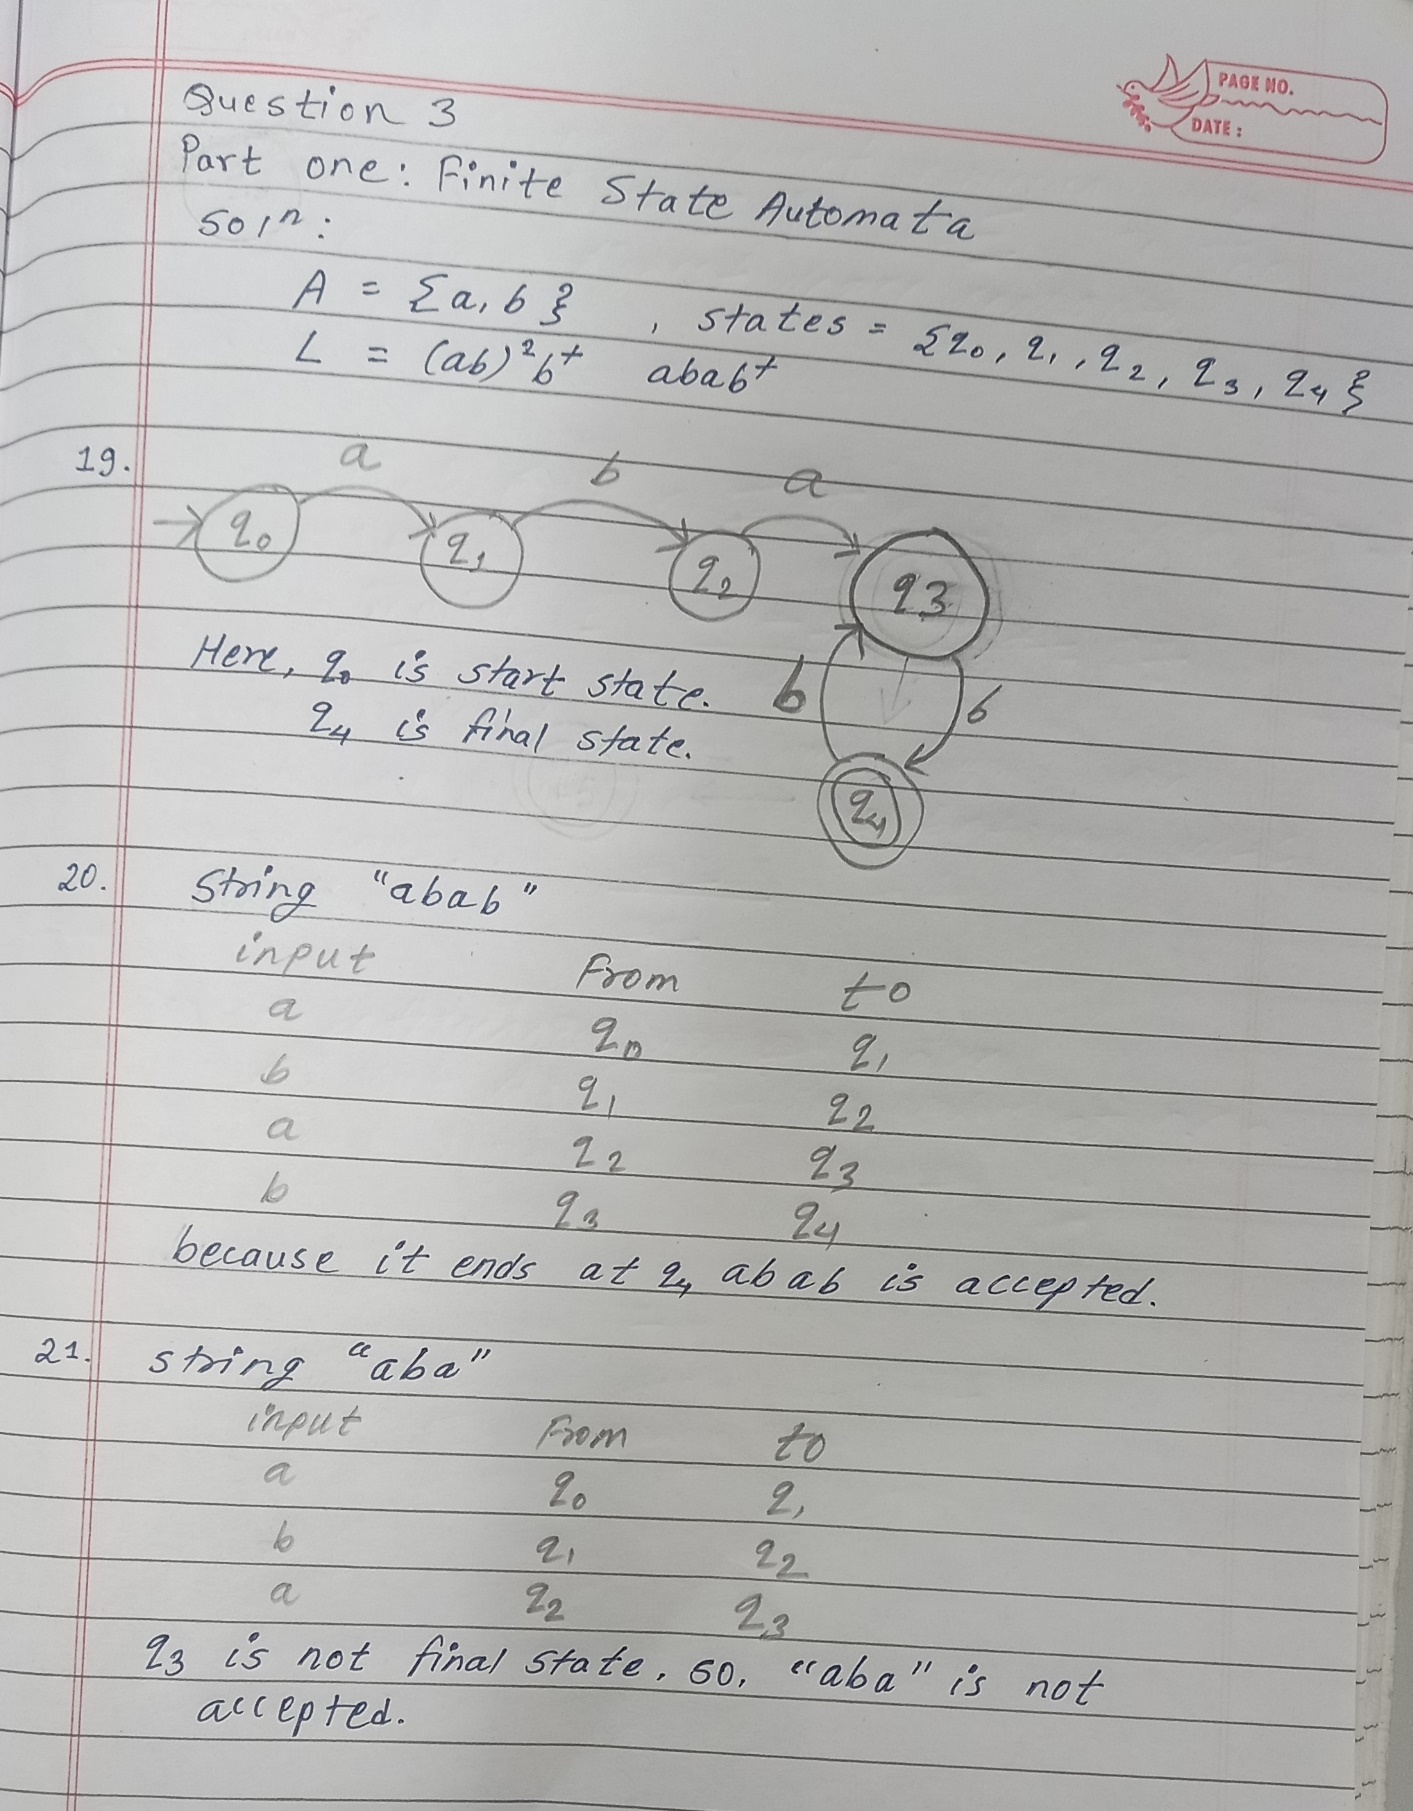 PAGE NO.
DATE:
Question 3
Part one: Finite State Automata
Solⁿ:
A = {a, b} , states = {q₀, q₁, q₂, q₃, q₄}
L = (ab)²b⁺ abab⁺
19.
a b a
q₀ q₁ q₂ q3
Here, q₀ is start state. b b
q₄ is final state.
q₄
20. String "abab"
input From to
a q₀ q₁
b q₁ q₂
a q₂ q₃
b q₃ q₄
because it ends at q₄ abab is accepted.
21. string "aba"
input From to
a q₀ q₁
b q₁ q₂
a q₂ q₃
q₃ is not final state, so, "aba" is not
accepted.